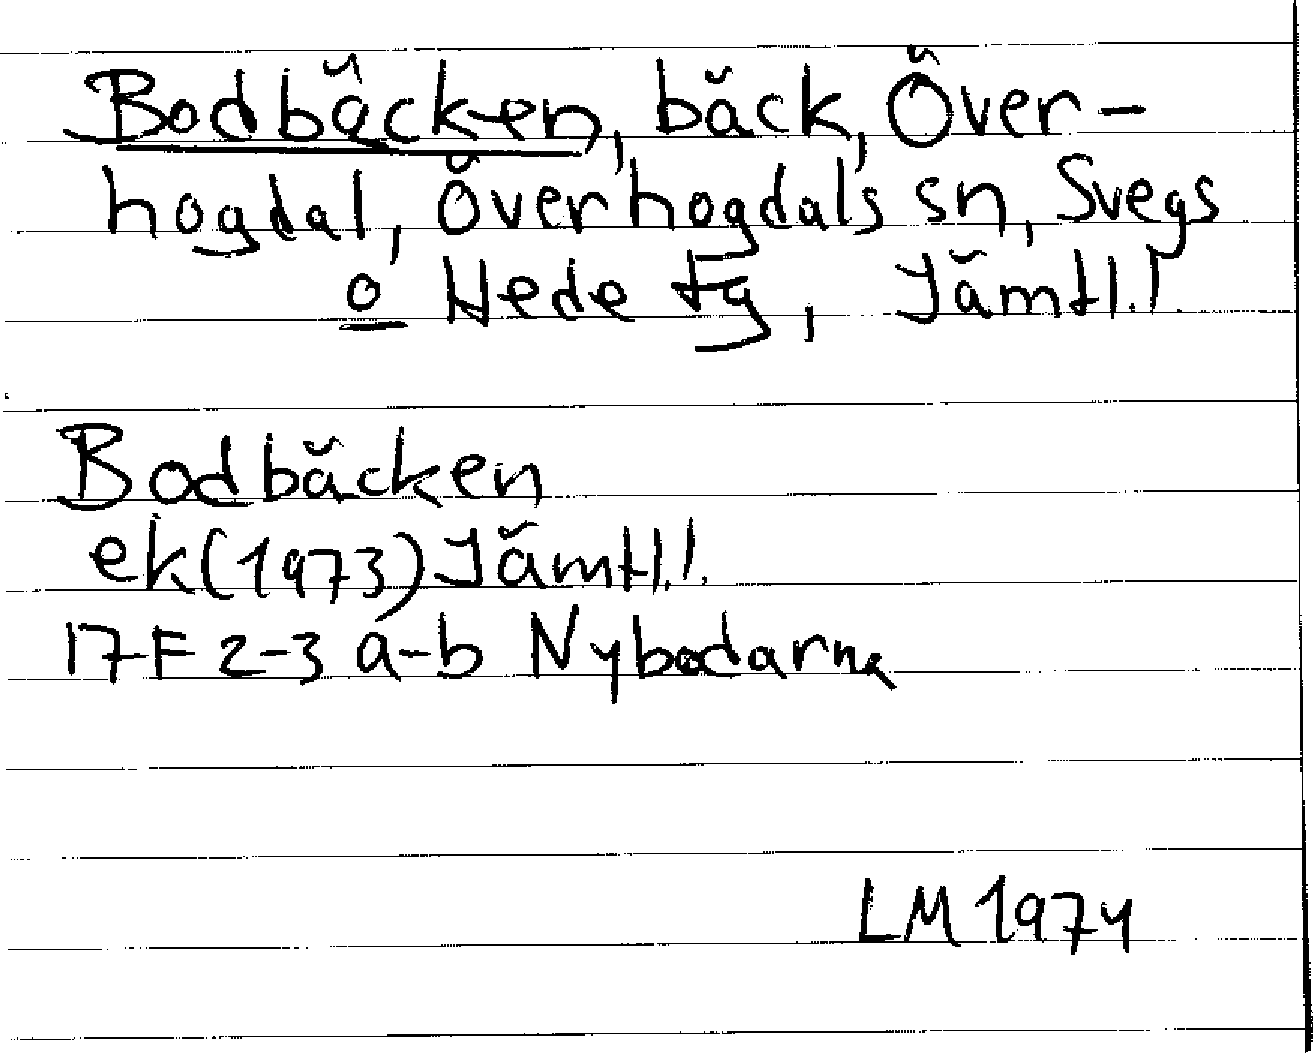 Bodbäcken, bäck, Över-
hogdal, Överhogdals sn, Svegs
o Hede tg, Jämtl.l.
Bodbäcken
ek(1973) Jämtl.l.
17F 2-3 a-b Nybodarna
LM 1974